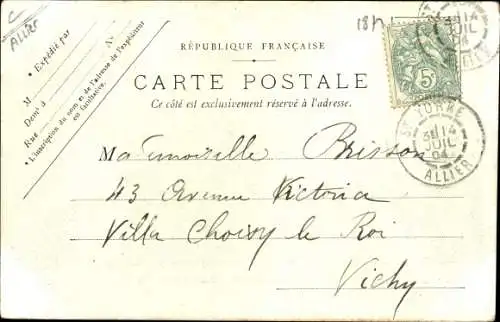 C
ALLIER
18h
Expédié par
M
Demt à
Rue
N
L'inscription du nom et de l'adresse de l'expéditeur
est facultative.
RÉPUBLIQUE FRANÇAISE
CARTE POSTALE
Ce côté est exclusivement réservé à l'adresse.
5c
ST YORRE
3E 14
JUIL
04
ALLIER
Mademoiselle Brisson
43 Avenue Victoria
Villa Choisy le Roi
Vichy